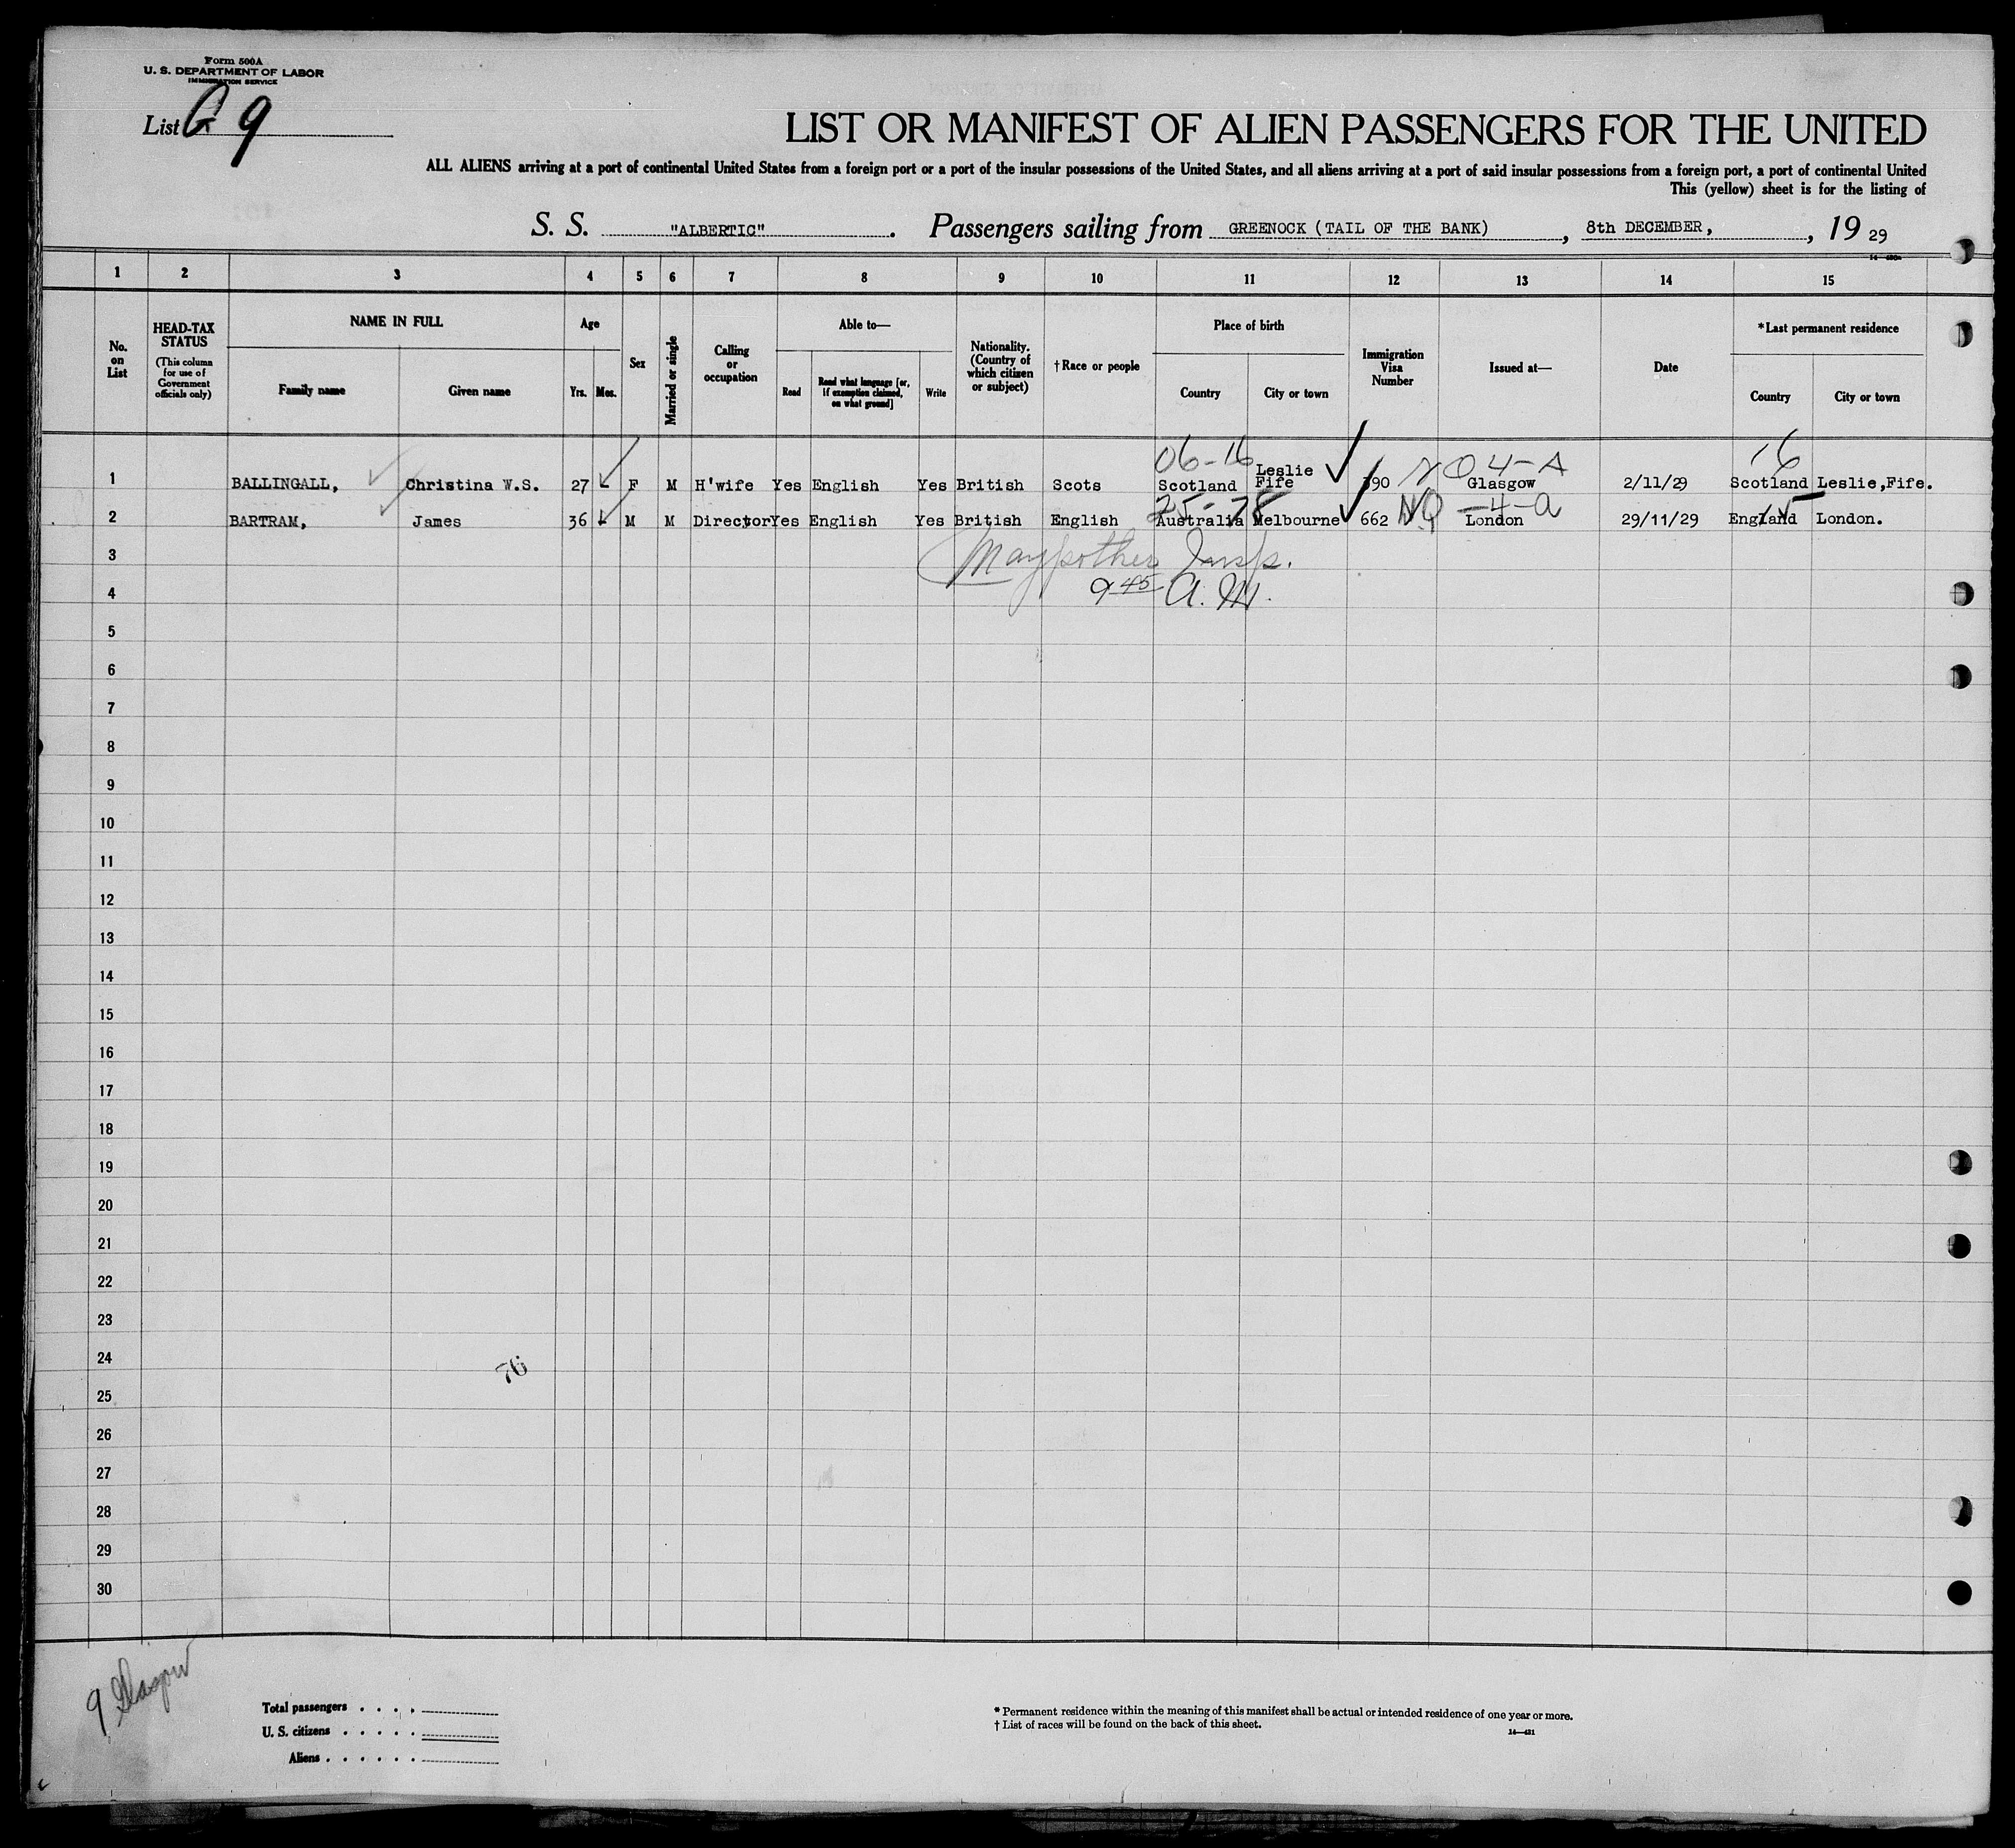 Form 500A
U. S. DEPARTMENT OF LABOR
IMMIGRATION SERVICE
List G 9
LIST OR MANIFEST OF ALIEN PASSENGERS FOR THE UNITED
ALL ALIENS arriving at a port of continental United States from a foreign port or a port of the insular possessions of the United States, and all aliens arriving at a port of said insular possessions from a foreign port, a port of continental United
This (yellow) sheet is for the listing of
S. S. "ALBERTIC". Passengers sailing from GREENOCK (TAIL OF THE BANK), 8th DECEMBER, , 19 29
1 2 3 4 5 6 7 8 9 10 11 12 13 14 15
No. on List
HEAD-TAX STATUS
(This column for use of Government officials only)
NAME IN FULL
Family name Given name
Age
Yrs. Mos.
Sex
Married or single
Calling or occupation
Able to—
Read Read what language [or, if exemption claimed, on what ground] Write
Nationality. (Country of which citizen or subject)
†Race or people
Place of birth
Country City or town
Immigration Visa Number
Issued at—
Date
*Last permanent residence
Country City or town
06-16 NQ 4-A 16
1 BALLINGALL, Christina W.S. 27 F M H'wife Yes English Yes British Scots Scotland Leslie Fife 390 Glasgow 2/11/29 Scotland Leslie,Fife.
25-78 NQ -4-a 15
2 BARTRAM, James 36 M M Director Yes English Yes British English Australia Melbourne 662 London 29/11/29 England London.
3
Insp.
4
9 45 A.M.
5
6
7
8
9
10
11
12
13
14
15
16
17
18
19
20
21
22
23
24
76
25
26
27
28
29
30
9 Glasgow
Total passengers . . . .
U. S. citizens . . . . .
Aliens . . . . . .
* Permanent residence within the meaning of this manifest shall be actual or intended residence of one year or more.
† List of races will be found on the back of this sheet.